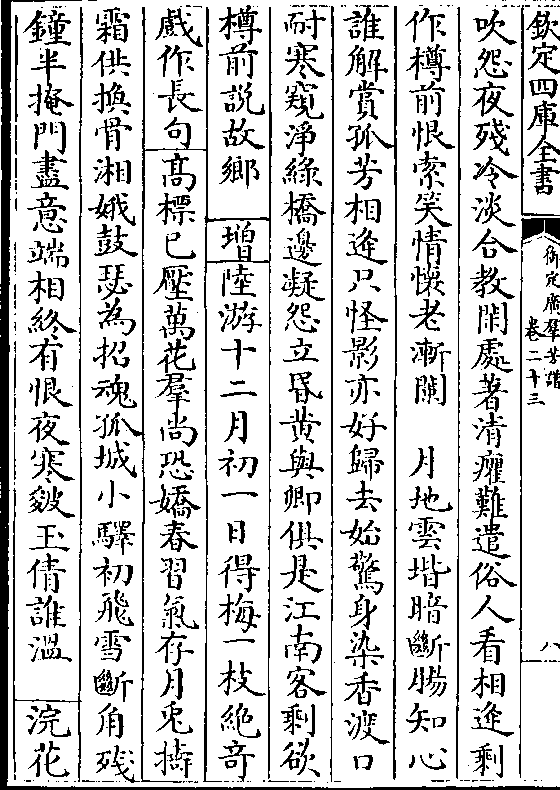 欽定四庫全書
御定廣羣芳譜
卷二十三
八
吹怨夜殘冷淡合教閑處著清癯難遣俗人看相逢剩
作樽前恨索笑情懷老漸闌　月地雲堦暗斷腸知心
誰解賞孤芳相逢只怪影亦好歸去始驚身染香渡口
耐寒窺淨綠橋邊凝怨立昏黄與卿俱是江南客剩欲
樽前說故鄉　增陸游十二月初一日得梅一枝絶奇
戲作長句　髙標已壓萬花羣尚恐嬌春習氣存月兎擣
霜供換骨湘娥鼓瑟為招魂孤城小驛初飛雪斷角殘
鐘半掩門盡意端相終有恨夜寒皴玉倩誰温　浣花